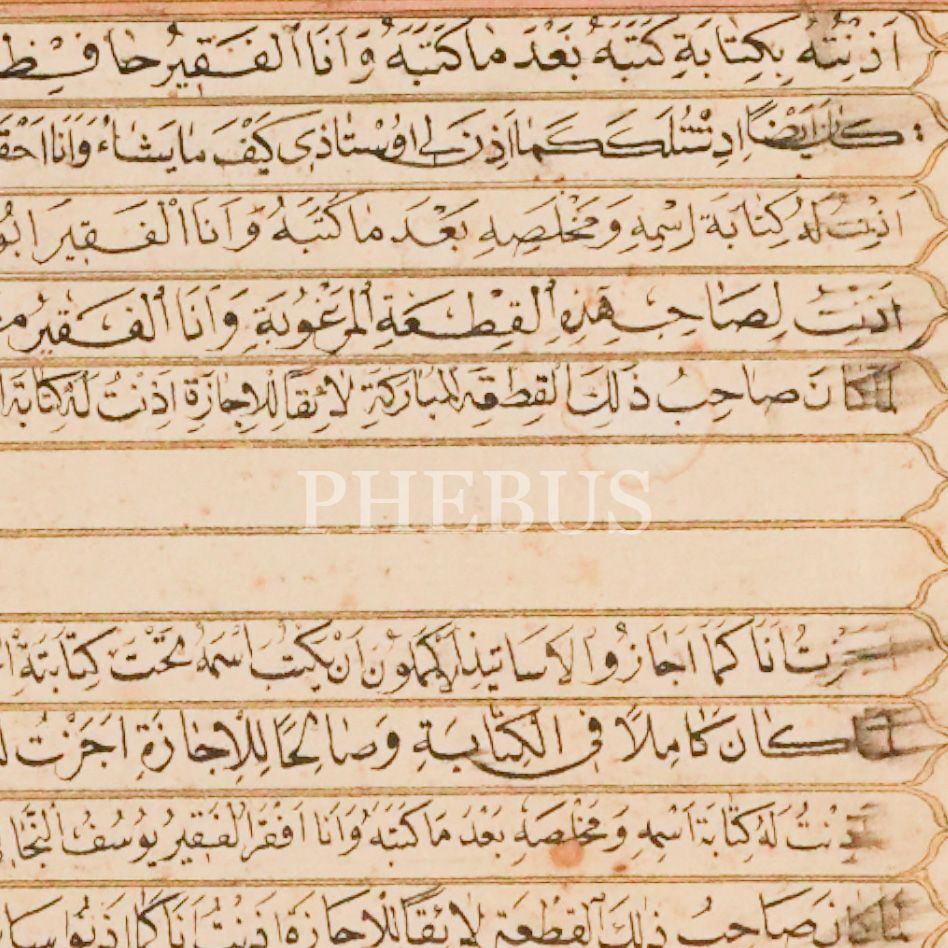 اَذِنْتُهُ بِكِتَابَةِ كَتَبَهُ بَعْدَ مَا كَتَبَهُ وَاَنَا الْفَقِيرُ حَافِظ
اَيْضًا كَمَا اَذِنَ لِى اُوسْتَاذِى كَيْفَ مَا يَشَاءُ وَاَنَا
اَذِنْتُ لَهُ كِتَابَةَ اِسْمِهِ وَمَخْلَصِهِ بَعْدَ مَا كَتَبَهُ وَاَنَا الْفَقِيرُ
اَذِنْتُ لِصَاحِبِ هٰذِهِ الْقِطْعَةِ الْمَرْغُوبَةِ وَاَنَا الْفَقِيرُ
لَمَّا كَانَ صَاحِبُ ذٰلِكَ الْقِطْعَةِ الْمُبَارَكَةِ لَائِقًا لِلْاِجَازَةِ اَذِنْتُ لَهُ كِتَابَةَ
PHEBUS
اَنَا كَمَا اَجَازُوا الْاَسَاتِيذُ الْاَكْمَلُونَ اَنْ يَكْتُبَ اِسْمَهُ تَحْتَ كِتَابَتِهِ
كَانَ كَامِلًا فِى الْكِتَابَةِ وَصَالِحًا لِلْاِجَازَةِ اَجَزْتُ
اَذِنْتُ لَهُ كِتَابَةَ اِسْمِهِ وَمَخْلَصِهِ بَعْدَ مَا كَتَبَهُ وَاَنَا اَفْقَرُ الْفَقِيرُ يُوسُفُ
لَمَّا كَانَ صَاحِبُ ذٰلِكَ الْقِطْعَةِ لَائِقًا لِلْاِجَازَةِ اَذِنْتُ اَنَا كَمَا اَذِنُوا